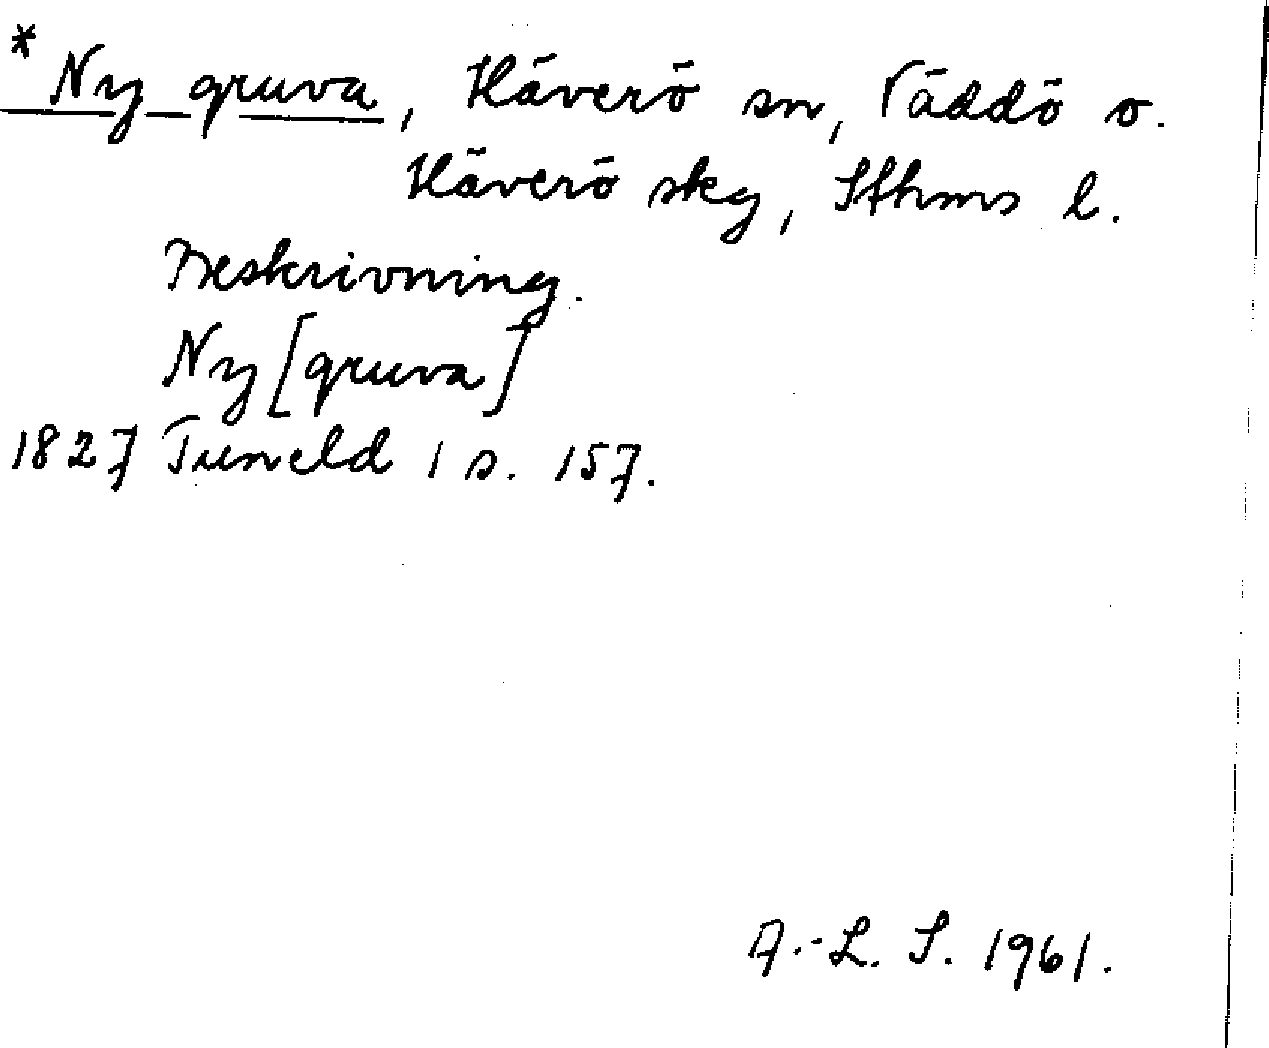 * Ny gruva, Häverö sn, Väddö o.
Häverö skg, Sthms l.
Beskrivning.
Ny [gruva]
1827 Tuneld 1 s. 157.
A.-L. S. 1961.